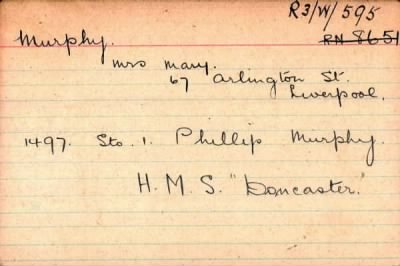 R3/W/595
Murphy. RN 8651
Mrs Mary.
67 Arlington St.
Liverpool.
1497. Sto. 1. Phillip Murphy.
H.M.S. "Doncaster."